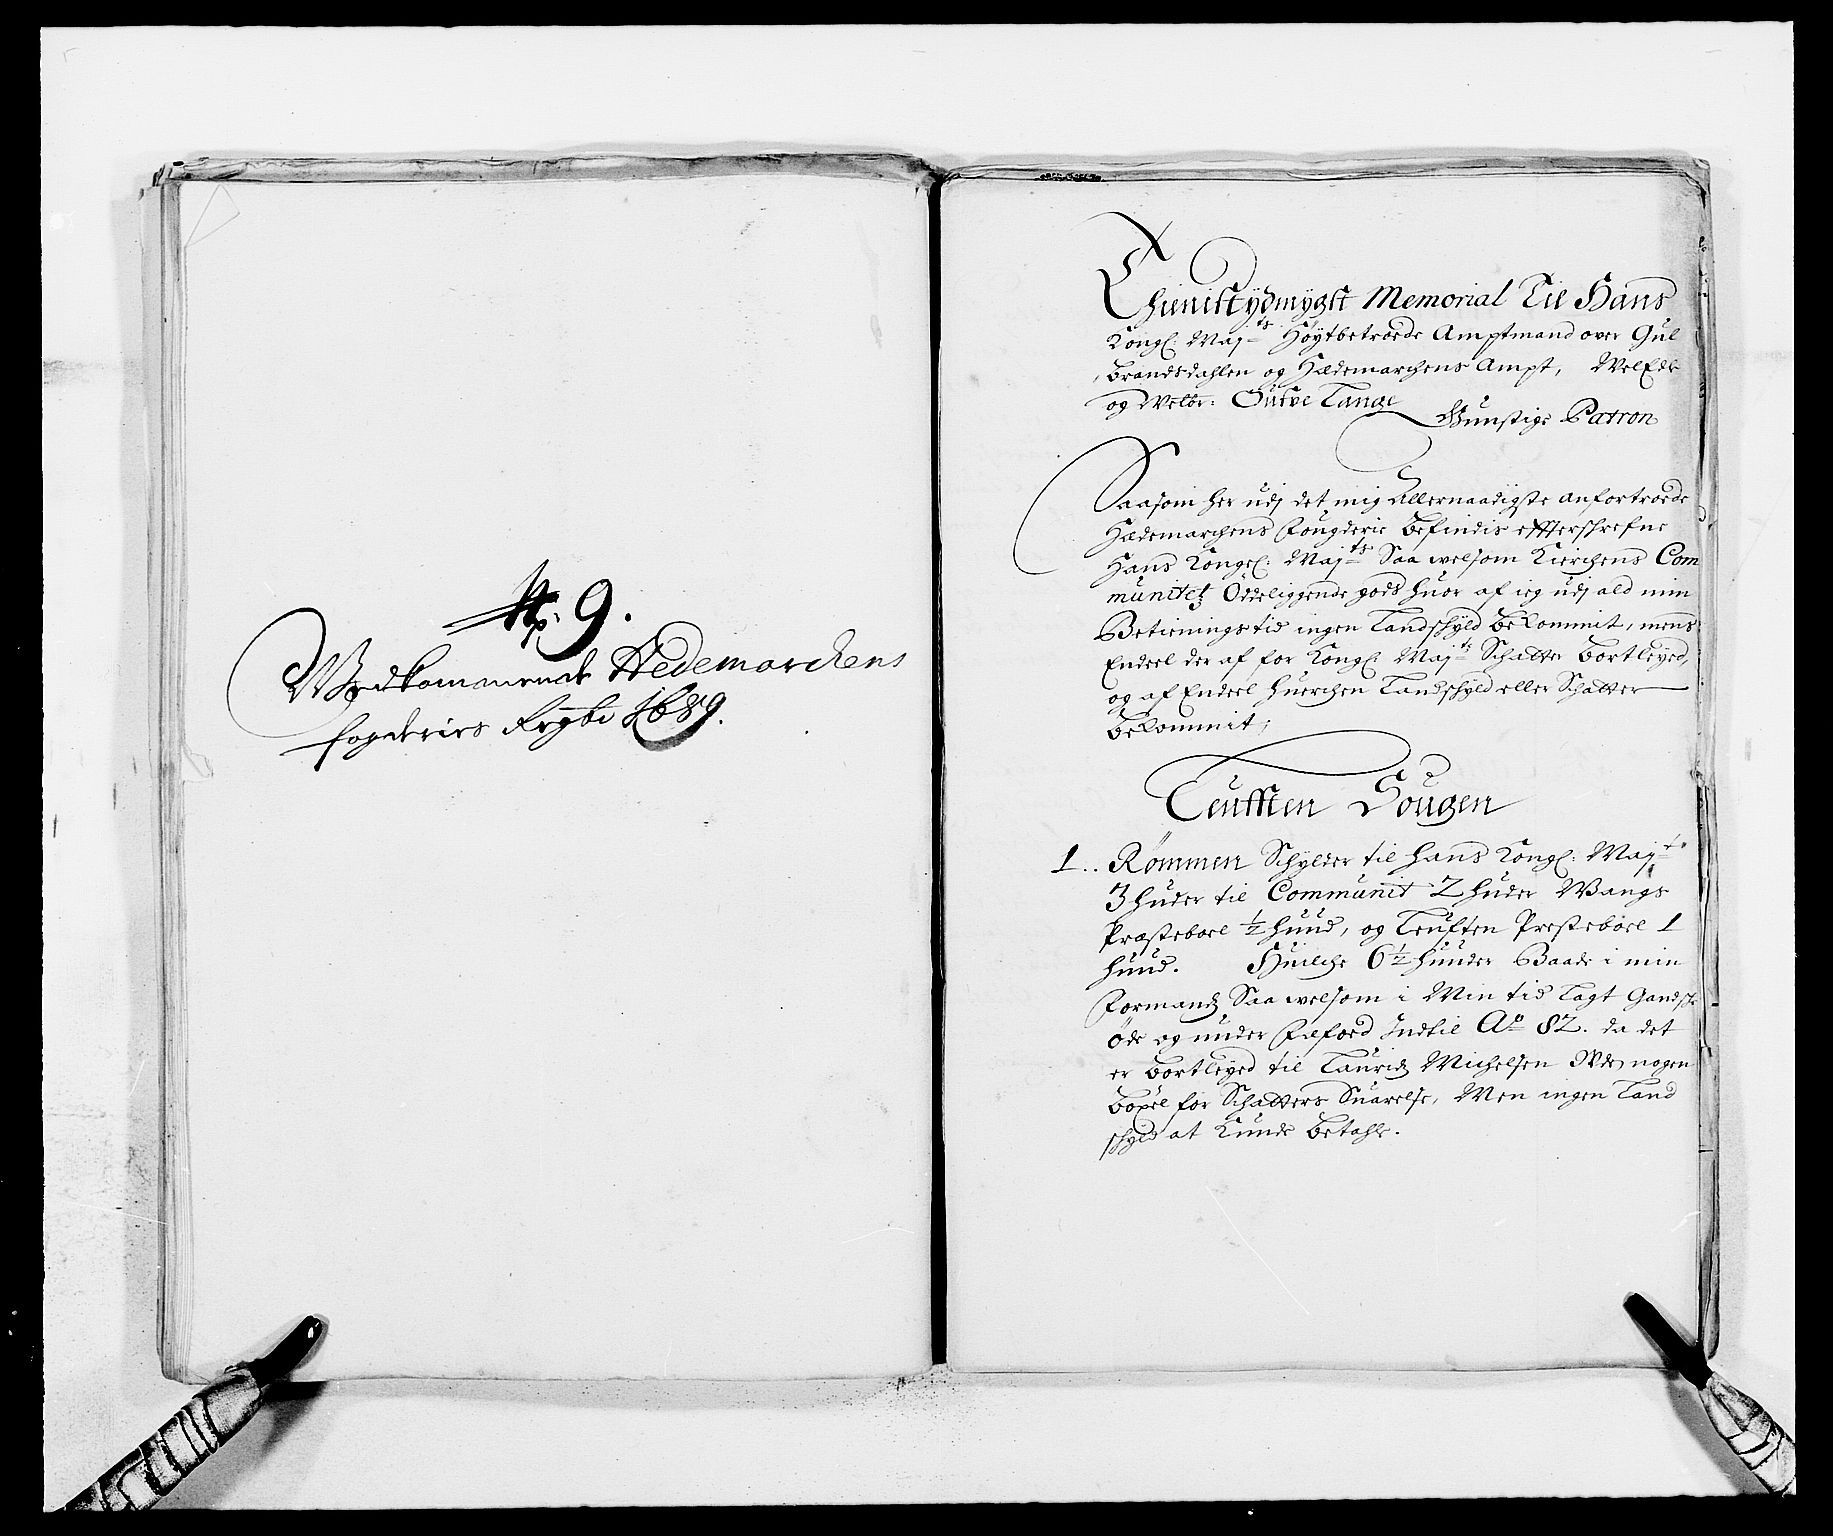 No. 9.
Wedkomanende Hedemarckens
fogderies Regbe 1689.
Thienistydmygst Memorial Til Hans
Kongl: Majts Høytbetroede Amptmand over Gul
brandsdahlen og Hædemarchens Ampt, WelEdle
og Welbr: Outve Tange
Gunstige Patron
Saasom her udj det mig Allernaadigste anfortroede
Hædemarchens Fougderie befindis effterschrefne
Hans Kongel: Majts Saa welsom Kierchens Com
munitetz Ødeliggende gods huor af ieg udj ald min
Betienings tid ingen Landschyld bekommit, mens
Endeel der af for Kongl: Majts Schatter bortleyed,
og af Endeel huerchen Landschyld eller Schatter
bekommit,
Leufften Sougen
1.. Rømmen Schylder til hans Kongl: Majts
3 huder til Communit 2 huder Wangs
Præsteboel ½ huud, og Leuften Presteboel 1
huud. Huilche 6½ huuder Baade i min
Formandz Saa welsom i Min tid lagt Gandsche
øde og under Felfoed Indtil Ao 82. da det
er bortleyed til Lauridz Michelsen Uden nogen
boxel for Schatters Suarelse, Men ingen Land
schyld at Kunde betahle.